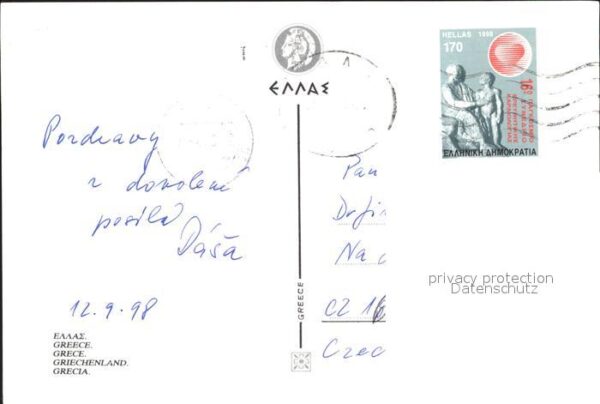 ΕΛΛΑΣ
HELLAS 1998
170
ΕΛΛΗΝΙΚΗ ΔΗΜΟΚΡΑΤΙΑ
Pozdravy
z dovolené
posílá
Dáša
12.9.98
ΕΛΛΑΣ.
GREECE.
GRECE.
GRIECHENLAND.
GRECIA.
GREECE
Pan
Na
CZ 16
Czec
privacy protection
Datenschutz